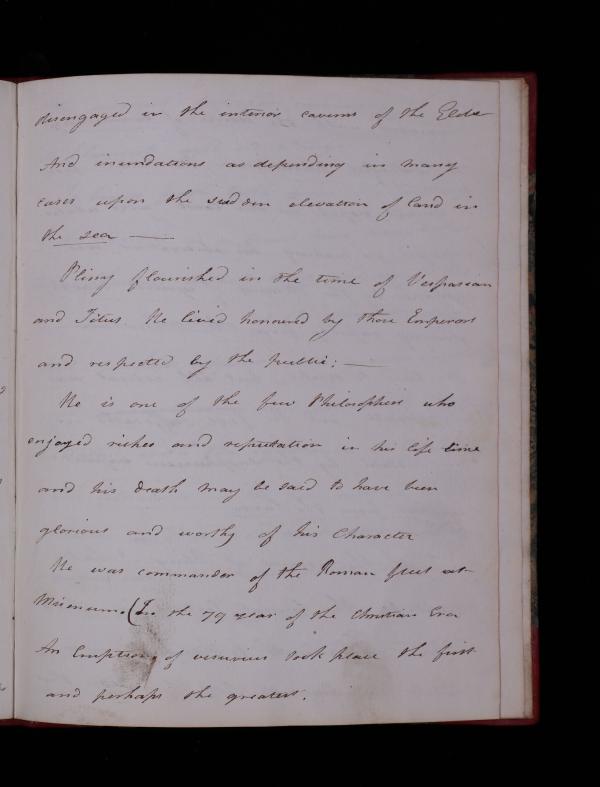 disengaged in the interior caverns of the Elds
And inundations as depending in many
cases upon the sudden elevation of land in
the sea —
Pliny flourished in the time of Vespasian
and Titus He lived honoured by those Emperors
and respected by the public; —
He is one of the few Philosophers who
enjoyed riches and reputation in his life time
and his death may be said to have been
glorious and worthy of his Character
He was commander of the Roman fleet at
Misenum. (In the 79 year of the Christian Era
An Eruption of vesuvius took place the first
and perhaps the greatest.